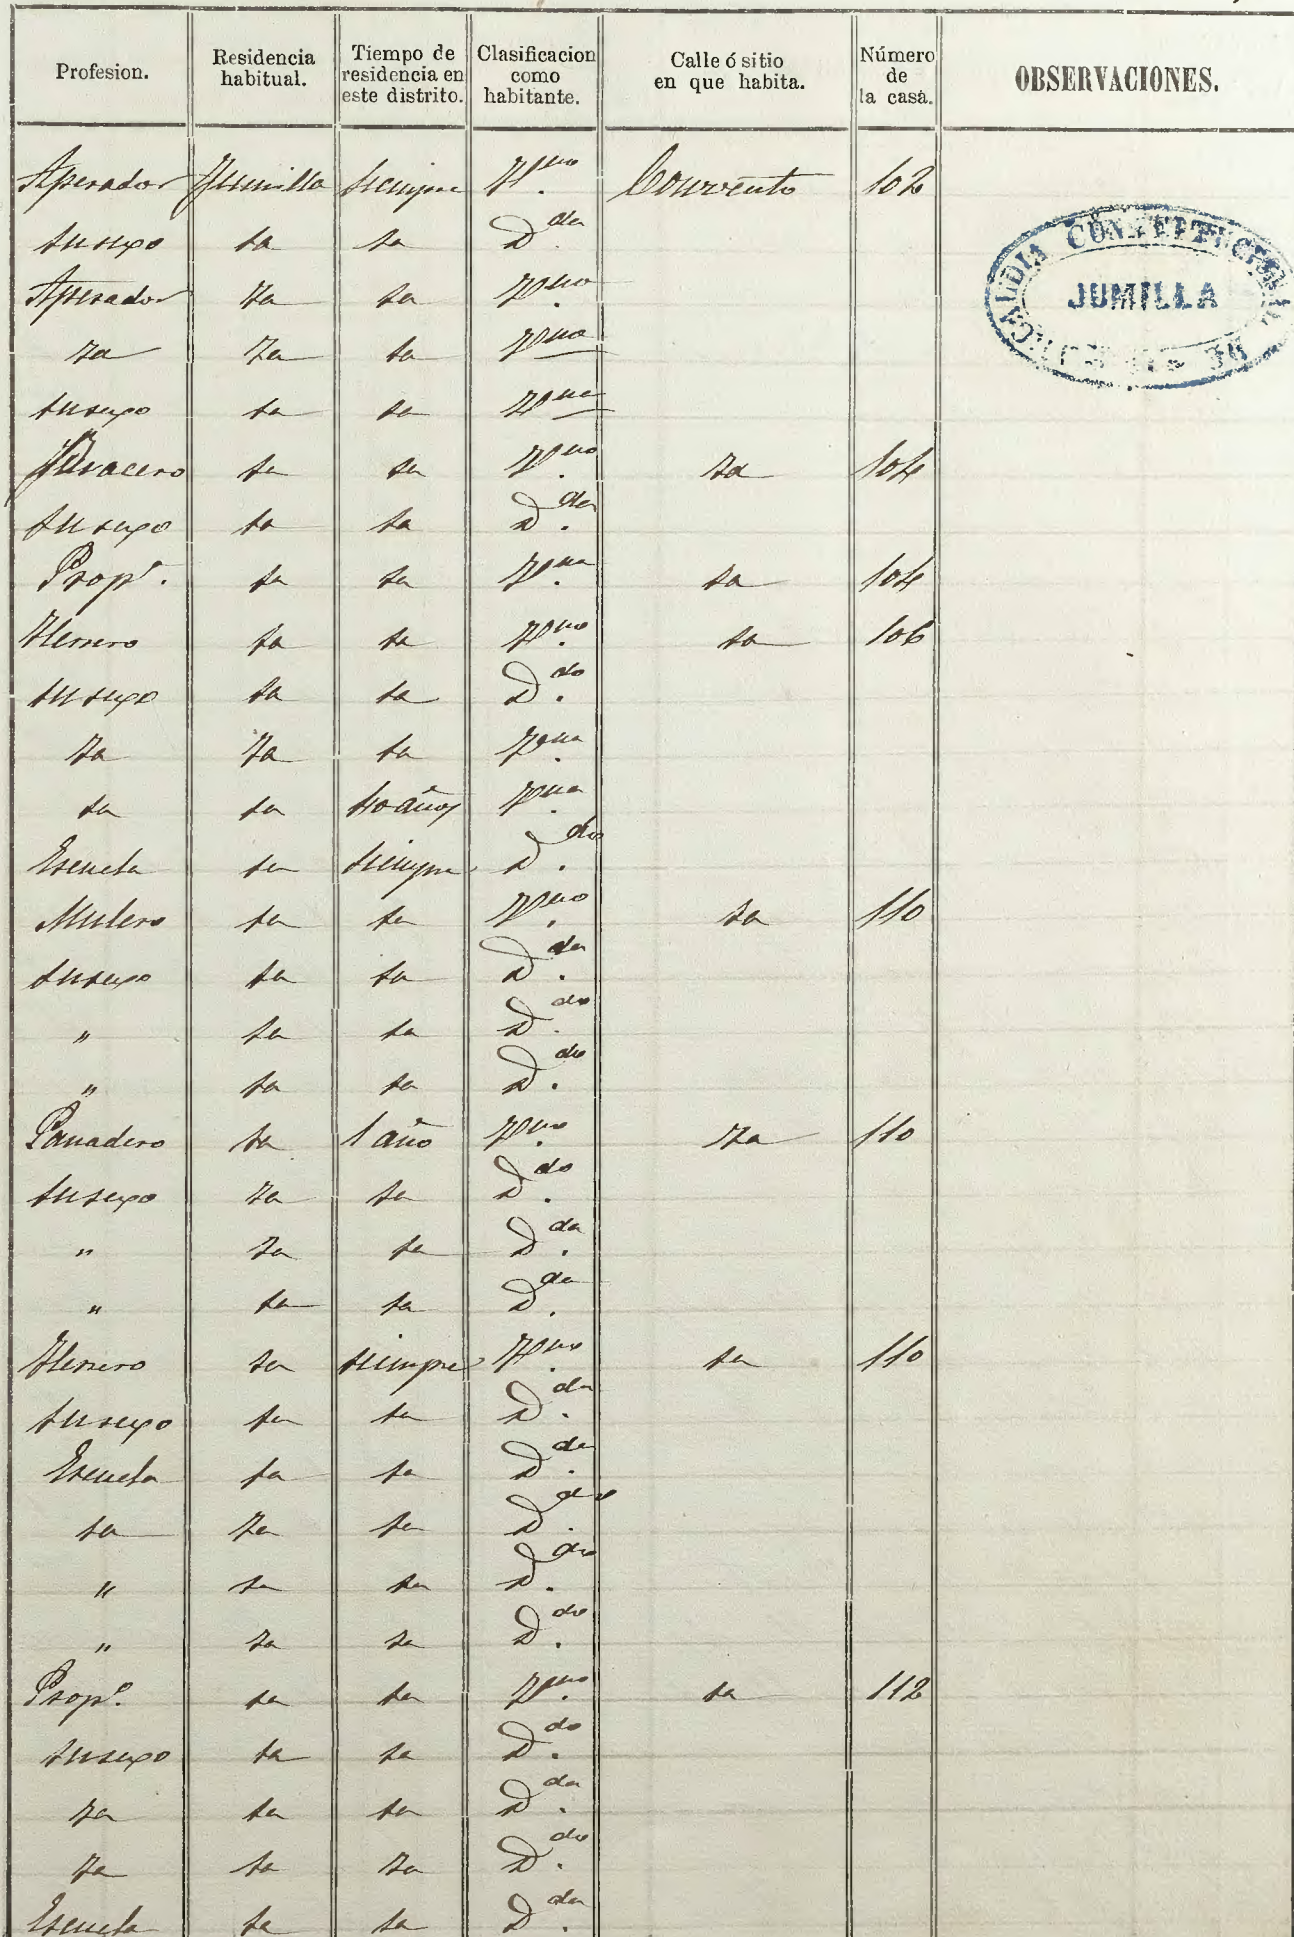 Profesion. Residencia habitual. Tiempo de residencia en este distrito. Clasificacion como habitante. Calle ó sitio en que habita. Número de la casa. OBSERVACIONES.
Aperador Jumilla siempre Vno. Convento 102
su sexo id id Dda.
Aperador id id Vno.
id id id Vno
su sexo id id Vna
Jornalero id id Vno. id 104
su sexo id id Dda.
Prop. id id Vna. id 104
Herrero id id Vno. id 106
su sexo id id Ddo.
id id id Vna.
id id 40 años Vna.
Escuela id siempre Ddo.
Mulero id id Vno. id 110
su sexo id id Dda.
" id id Ddo.
" id id Ddo.
Panadero id 1 año Vno. id 110
su sexo id id Ddo.
" id id Dda.
" id id Dda.
Herrero id siempre Vno. id 110
su sexo id id Dda.
Escuela id id Dda.
id id id Ddo.
" id id Ddo.
" id id Ddo.
Propo. id id Vno. id 112
su sexo id id Ddo.
id id id Dda.
id id id Ddo.
Escuela id id Dda.
JUMILLA